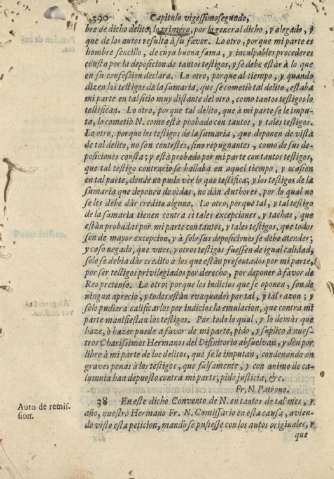 590 Capitulo vigesimosegundo,
bre de dicho delito, lo primero, por lo general dicho, y alegado, y
que de los autos resulta à su favor. Lo otro, porque mi parte es
hombre sencillo, de cuya buena fama, y inculpables procederes
consta por la deposicion de tantos testigos, y se debe estàr à lo que
en su confession declara. Lo otro, porque al tiempo, y quando
dizen los testigos de la sumaria, que se cometiò tal delito, estaba
mi parte en tal sitio muy distante del otro, como tantos testigos lo
testifican. Lo otro, porque tal delito, que à mi parte se le imputa,
lo cometiò N. como està probado con tantos, y tales testigos.
Lo otro, porque los testigos de la sumaria, que deponen de vista
de tal delito, no son contestes, sino repugnantes, como de sus deposiciones
consta; y està probado por mi parte con tantos testigos,
que tal testigo contrario se hallaba en aquel tiempo, y ocasion
en tal parte, donde no pudo vèr lo que testifica; y los testigos de la
sumaria que deponen de oidas, no dàn Authores, por lo qual no
se les debe dàr credito alguno. Lo otro, por que tal, y tal testigo
de la sumaria tienen contra sì tales excepciones, y tachas, que
estàn probadas por mi parte con tantos, y tales testigos, que todos
son de mayor excepcion, y à solas sus deposiciones se debe atender;
y caso negado, que unos, y otros testigos fuessen de igual calidad,
solo se debia dàr credito à los que estàn presentados por mi parte,
por ser testigos privilegiados por derecho, por deponer à favor de
Reo pretenso. Lo otro; porque los indicios que se oponen, son de
ningun aprecio, y todos estàn evaquados por tal, y tal razon; y
solo pudiera calificarlos por indicios la emulacion, que contra mi
parte manifiestan los testigos. Por todo lo qual, y lo demàs que
haze, ò hazer puede à favor de mi parte, pido, y suplico à nuestros
Charissimos Hermanos del Difinitorio absuelvan, y dèn por
libre à mi parte de los delitos, que se le imputan, condenando en
graves penas à los testigos, que falsamente, y con animo de calumnia
han depuesto contra mi parte, pido justicia, &c.
Fr. N. Patrono.
Auto de remission.
38 En este dicho Convento de N. en tantos de tal mes, y
año, nuestro Hermano Fr. N. Comissario en esta causa, aviendo
visto esta peticion, mandò se pusiesse con los autos originales, y
que